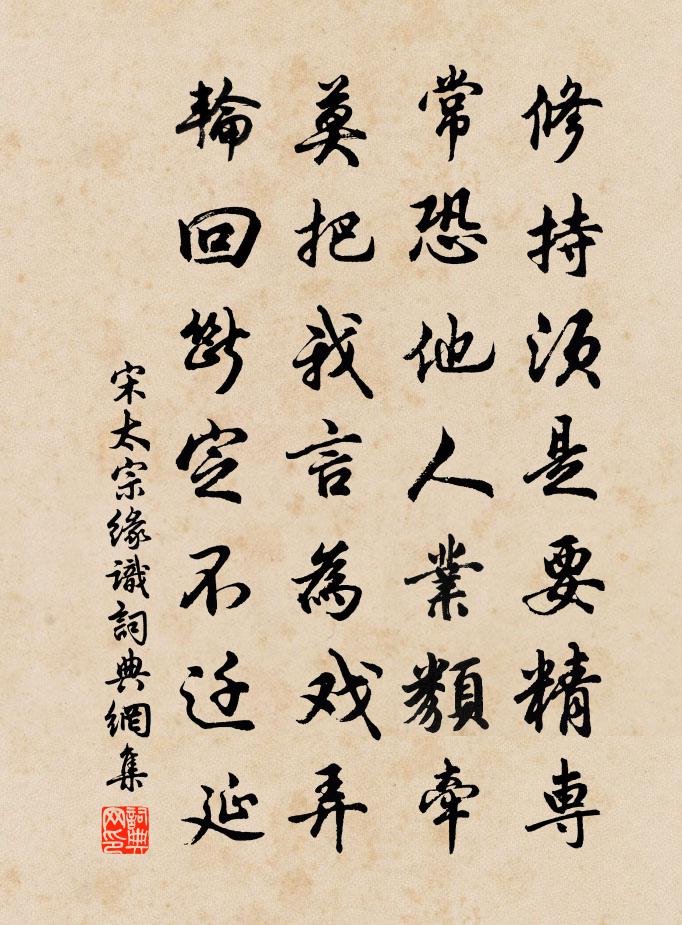 修持須是要精專
常恐他人業類牽
莫把我言為戏弄
輪回断定不迁延
宋太宗緣識詞典網集
詞典網印